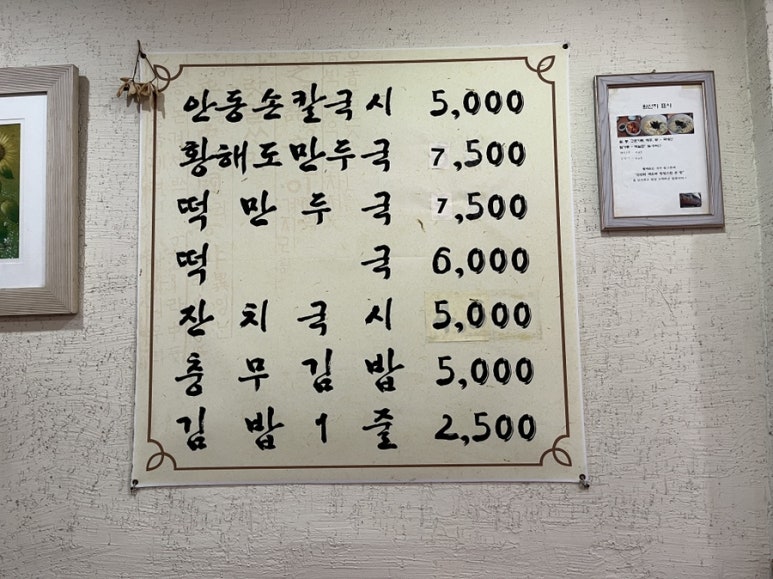 안동손칼국시 5,000
황해도만두국 7,500
떡만두국 7,500
떡국 6,000
잔치국시 5,000
충무김밥 5,000
김밥 1줄 2,500
원산지 표시